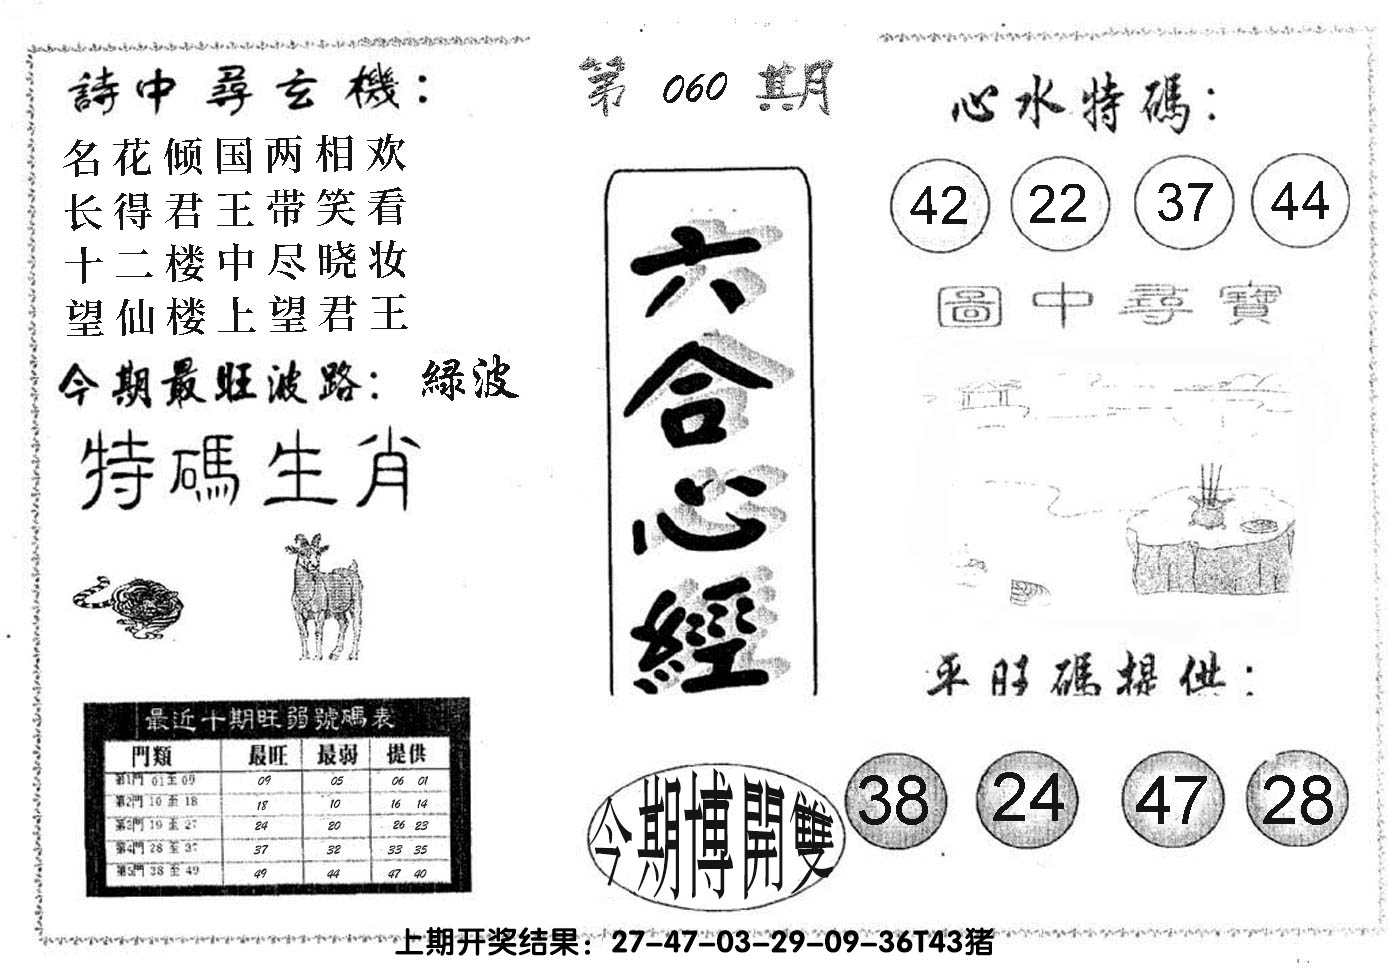 詩中尋玄機：
名花倾国两相欢
长得君王带笑看
十二楼中尽晓妆
望仙楼上望君王
今期最旺波路：綠波
特碼生肖
最近十期旺弱號碼表
門類 最旺 最弱 提供
第1門 01至09 09 05 06 01
第2門 10至18 18 10 16 14
第3門 19至27 24 20 26 23
第4門 28至37 37 32 33 35
第5門 38至49 49 44 47 40
第060期
六合心經
今期博開雙
心水特碼：
42 22 37 44
圖中尋寶
平旺碼提供：
38 24 47 28
上期开奖结果：27-47-03-29-09-36T43猪